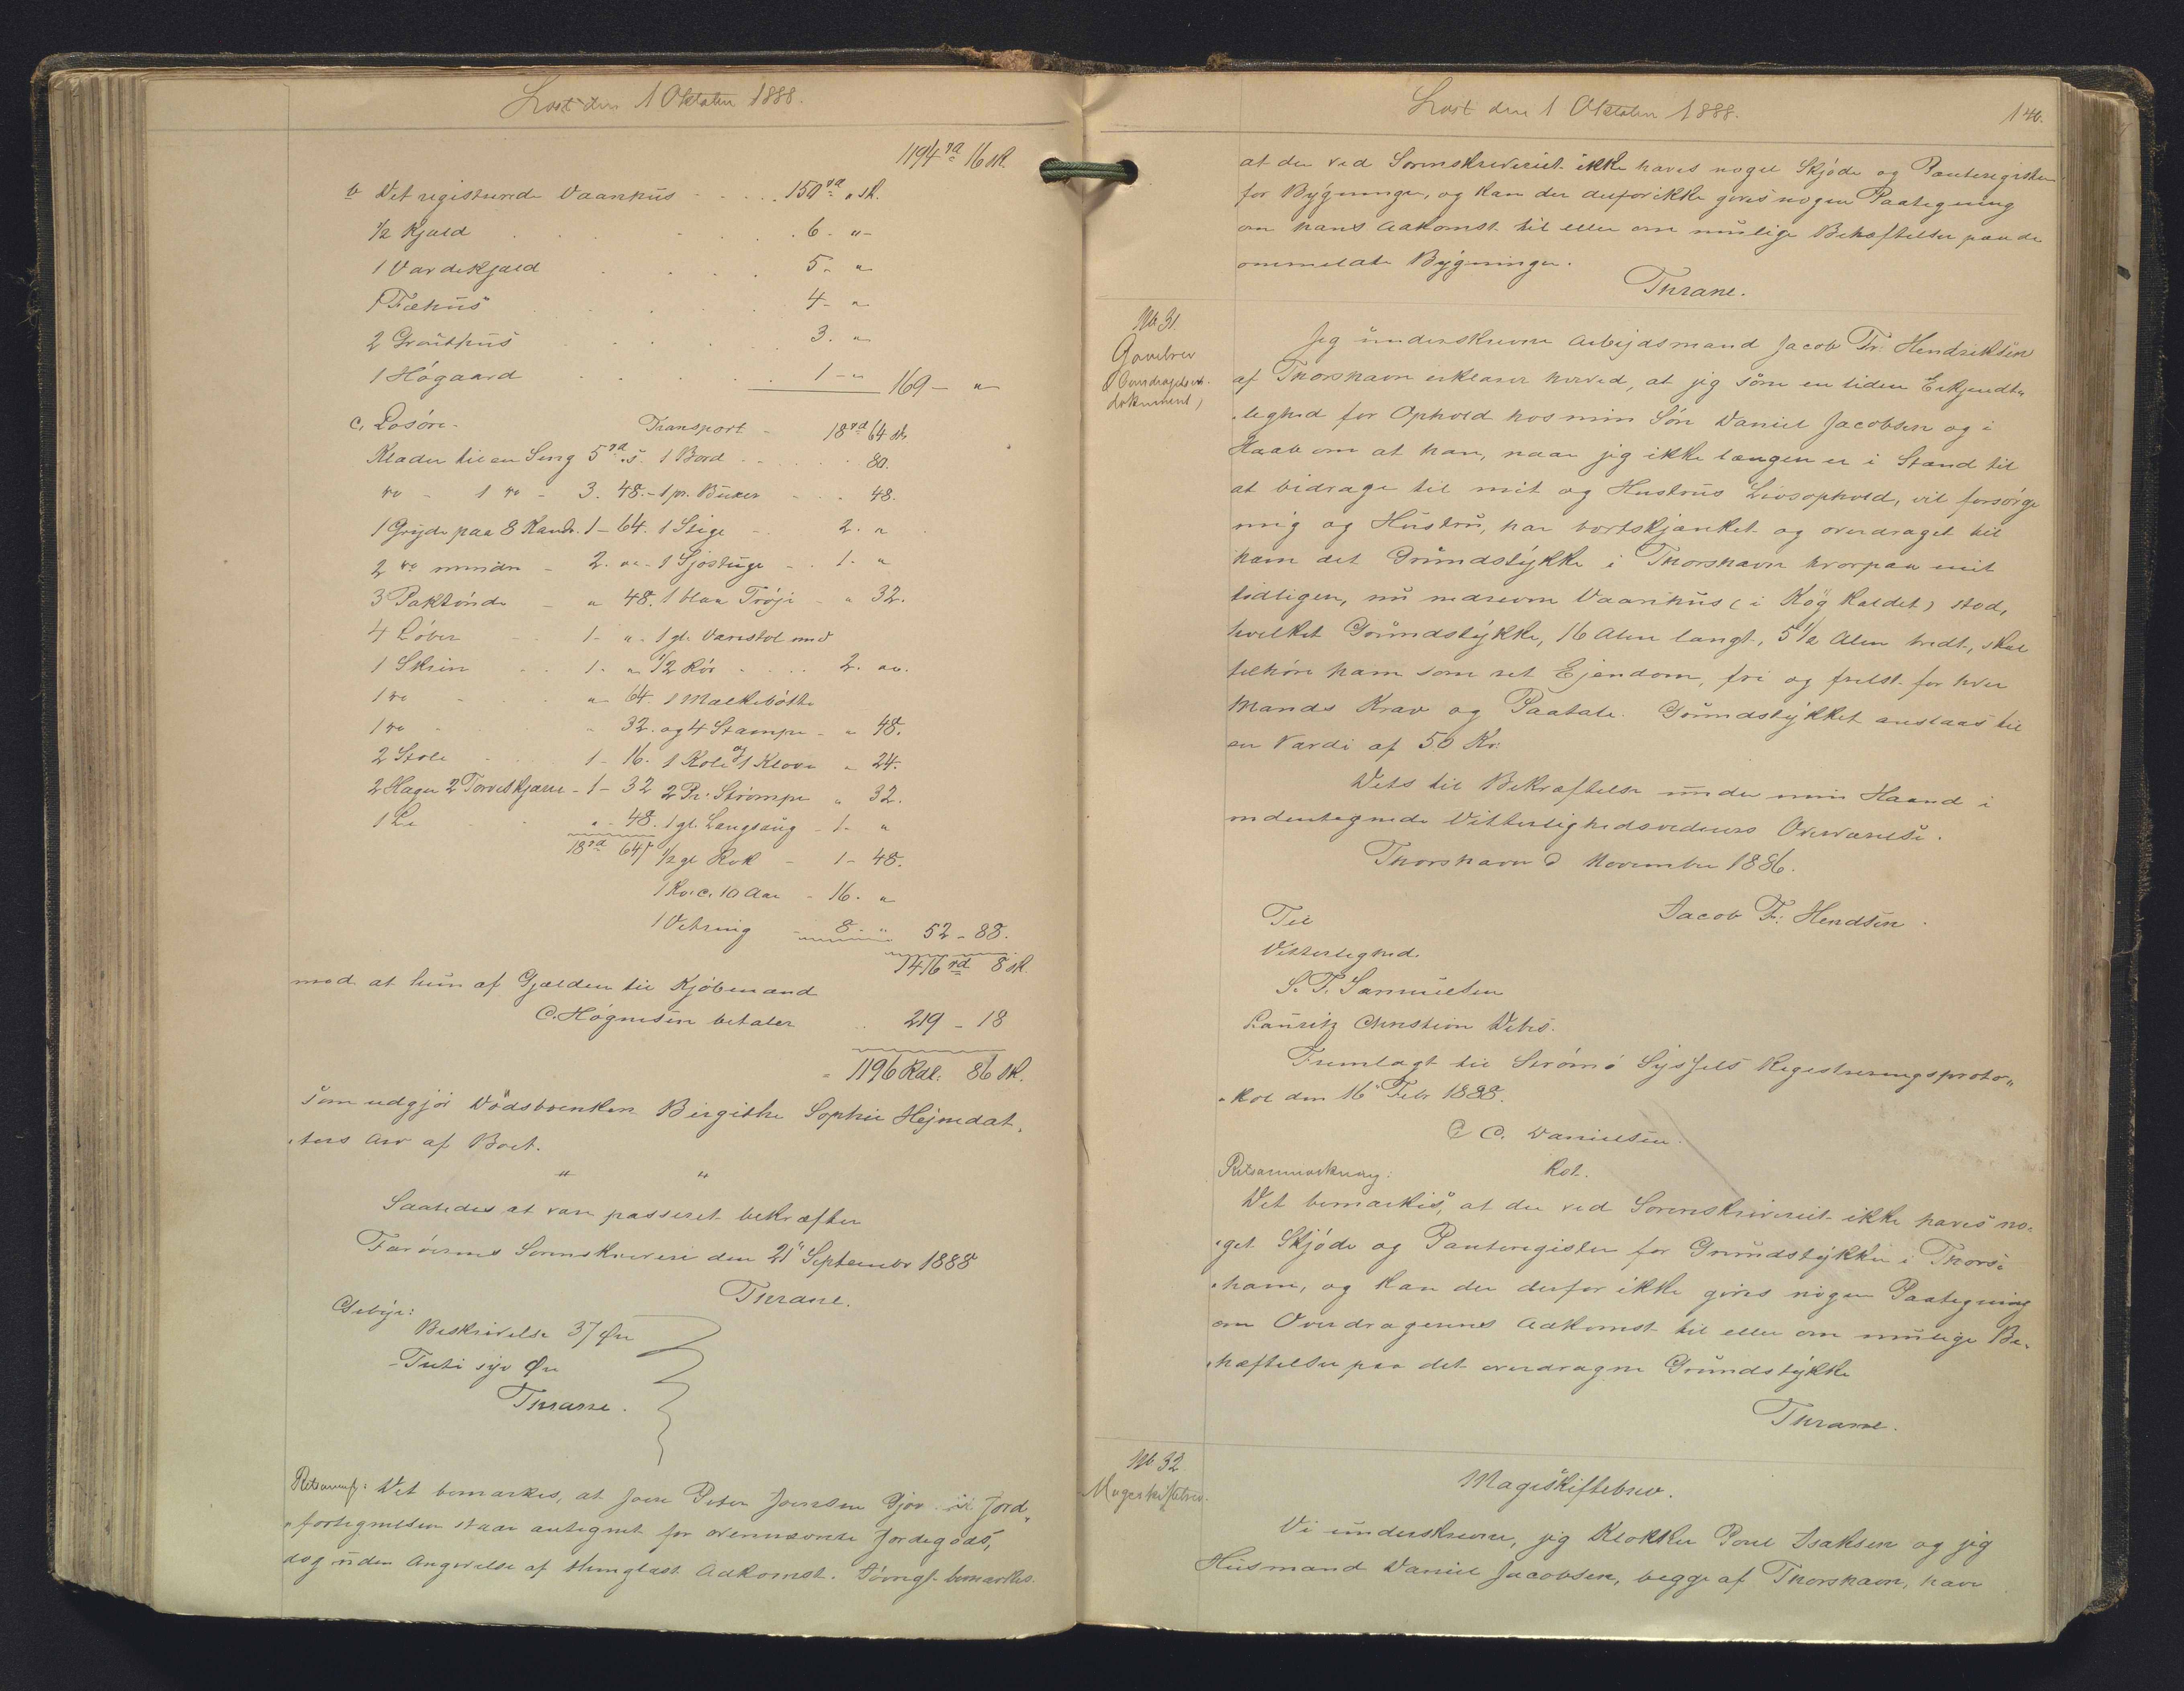 Læst den 1 Oktober 1888.
1194 rd 16 sk.
b Det registrerede Vaanhus - . . . . 150 rd " sk.
1/2 Kjald . . . . 6 - " -
1 Vardekjald . . . 5 - "
1 Fæhus . . . . 4 - "
2 Gróuthus . . . . 3 - "
1 Høgaard . . . . 1 - " 169 - "
c, Løsøre - Transport - 18 rd 64 sk
Klæder til en Seng 5 rd " s. 1 Bord - . . . . 80.
do - 1 do - 3. 48. - 1 pr. Buxer - . . 48.
1 Gryde paa 8 Kand. 1 - 64. 1 Stige - . 2. "
2 do mindre - 2. " - 1 Sjøstuge - . 1. "
3 Paktønde - " 48. 1 blaa Trøje - " 32.
4 Løber - . 1 - " - 1 gl. Vævstol med
1 Skrin . . 1 - " 1/2 Rør . . . . 2. "
1 do - . . " 64. 1 Malkebøtte
1 do - . . " 32. og 4 Stampe - " 48.
2 Stole . . 1 - 16. 1 Kole og 1 Klove " 24.
2 Hager 2 Torvskjærer - 1 - 32 2 Pr. Strømper " 32.
1 Le - . " - 48. 1 gl. Langsaug - 1 - "
18 rd 64 s 1/2 gl. Rok - 1 - 48.
1 Ko c. 10 Aar - 16. "
1 Vetring - 8 - " 52 - 88.
1416 rd 8 sk.
mod at hun af Gjælden til Kjøbmand
C. Høgnesen betaler . . 219 - 18
= 1196 Rdl. 86 sk.
som udgjør Dødsboenken Birgithe Sophie Hejnedat„
„ters Arv af Boet.
" "
Saaledes at være passeret bekræfter
Færøernes Sorenskriveri den 21 September 1888
Thrane.
Gebyr:
Beskrivelse 37 Øre
- Treti syv Øre
Thrane.
Retsanmk: Det bemærkes, at Joen Peter Joensen Gjov i Jord„
„fortegnelsen staar antegnet for ovennævnte Jordegods,
dog uden Angivelse af thinglæst Adkomst. Førrigt bemærkes
Læst den 1 Oktober 1888. 146.
at der ved Sorenskriveriet ikke haves noget Skjøde og Panteregister
for Bygninger, og kan der derfor ikke gives nogen Paategning
om hans Adkomst til eller om mulige Behæftelser paa de
ommeldte Bygninger.
Thrane.
No 31.
Gavebrev
(Overdragelses-
dokument)
Jeg underskrevne Arbejdsmand Jacob Fr. Hendriksen
af Thorshavn erklærer herved, at jeg som en liden Erkjendt„
„lighed for Ophold hos min Søn Daniel Jacobsen og i
Haab om at han, naar jeg ikke længer er i Stand til
at bidrage til mit og Hustrus Livsophold, vil forsørge
mig og Hustru, har bortskjænket og overdraget til
ham det Grundstykke i Thorshavn hvorpaa mit
tidligere, nu nedrevne Vaanhus (i Køg kaldet) stod,
hvilket Grundstykke, 16 Alen langt, 5 1/2 Alen bredt, skal
tilhøre ham som ret Ejendom, fri og frelst for hver
Mands Krav og Paatale. Grundstykket anslaas til
en Værdi af 50 Kr.
Dets til Bekræftelse under min Haand i
undertegnede Vitterlighedsvidners Overværelse.
Thorshavn d November 1886.
Til Jacob F. Hendsen.
Vitterlighed.
S. F. Samuelsen
Lauritz Christion Debes.
Fremlagt til Strømø Syssels Registreringsproto„
„kol den 16 Febr 1888.
C C. Danielsen.
Kst.
Retsanmærkning:
Det bemærkes, at der ved Sorenskriveriet ikke haves no„
„get Skjøde og Panteregister for Grundstykker i Thors„
„havn, og kan der derfor ikke gives nogen Paategning
om Overdragerens Adkomst til eller om mulige Be„
„hæftelser paa det overdragne Grundstykke
Thrane.
No 32.
Mageskiftebrev.
Mageskiftebrev.
Vi underskrevne, jeg Klokker Poul Isaksen og jeg
Husmand Daniel Jacobsen, begge af Thorshavn, have